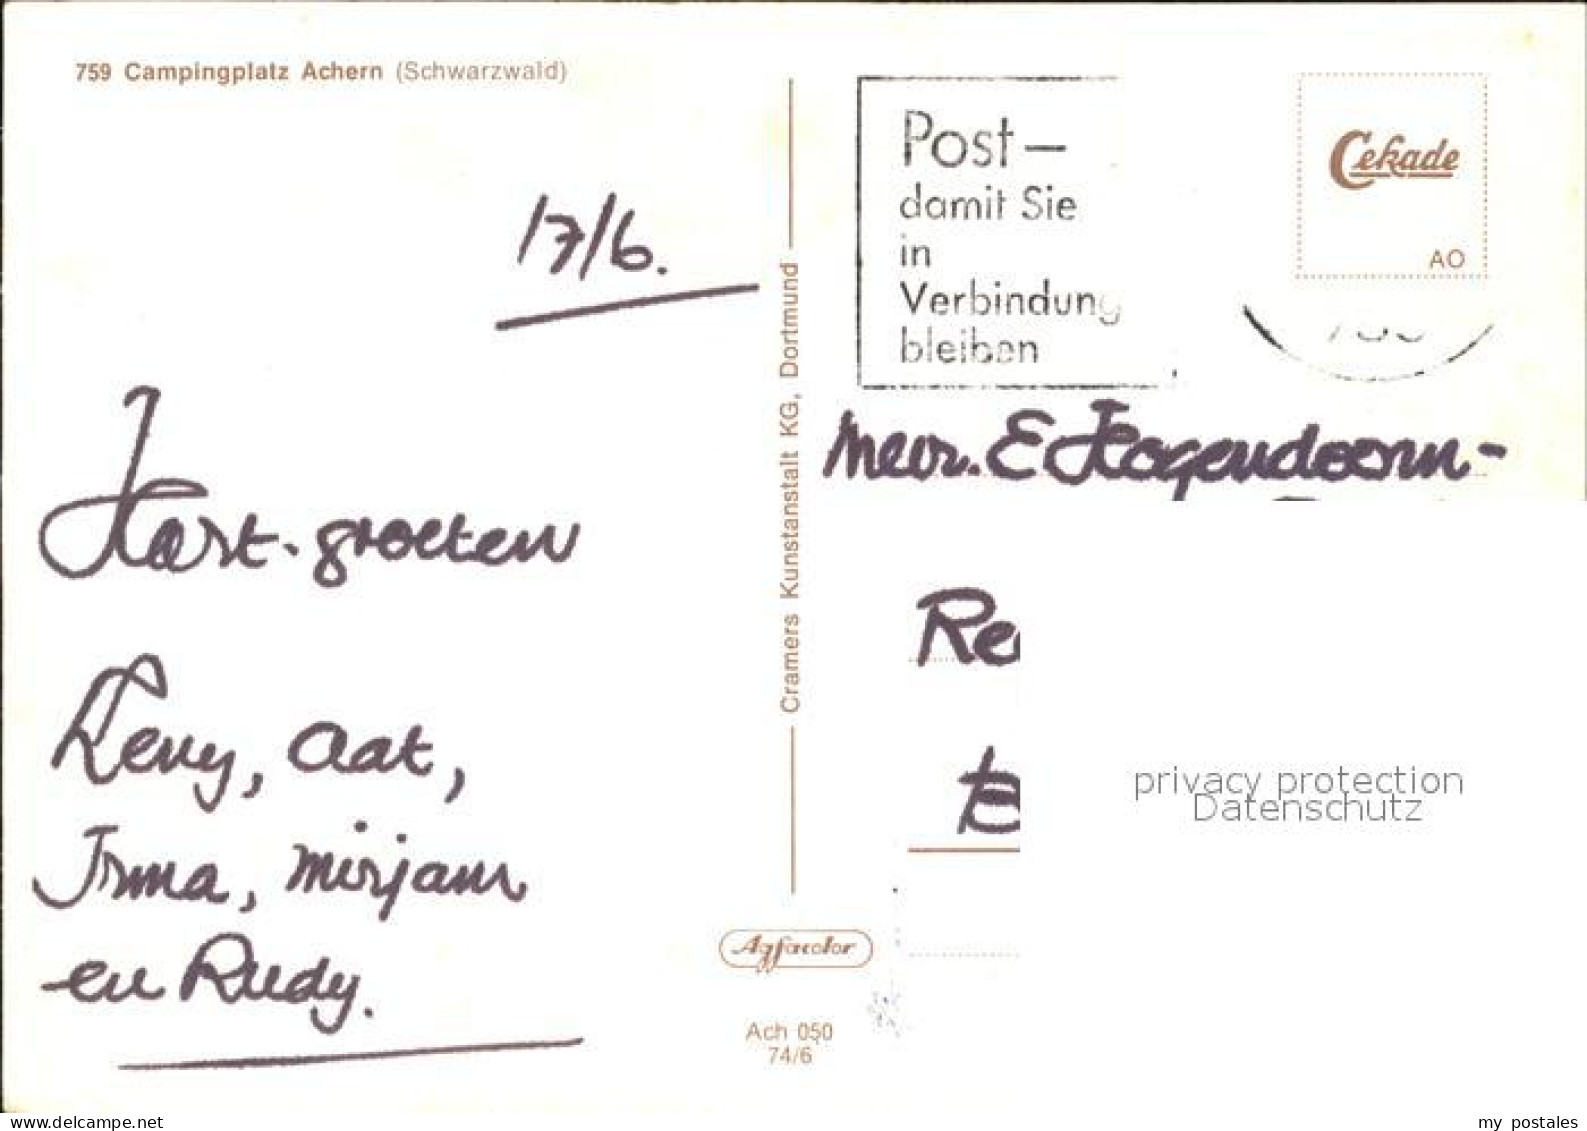 759 Campingplatz Achern (Schwarzwald)
17/6.
Hart. groeten
Leny, Aat,
Irma, Mirjam
en Rudy.
Cramers Kunstanstalt KG, Dortmund
Agfacolor
Ach 050
74/6
Post–
damit Sie
in
Verbindung
bleiben
Cekade
AO
Mevr. E Hogendoorn-
privacy protection
Datenschutz
www.delcampe.net
my postales